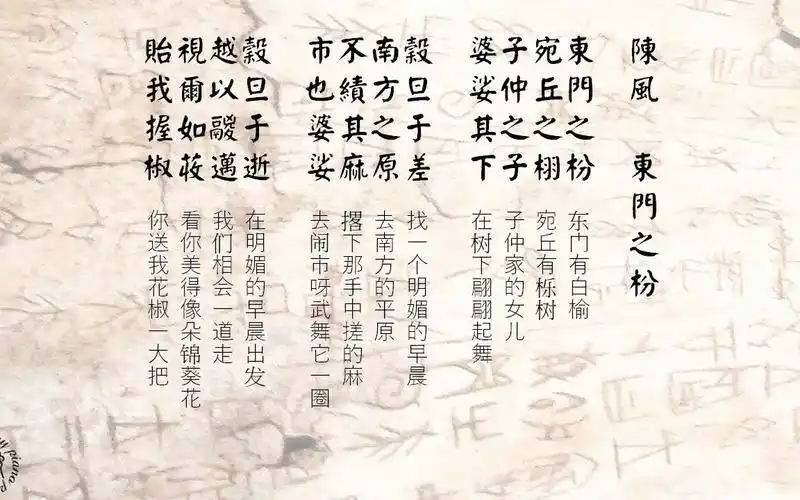 陳風 東門之枌
東門之枌
宛丘之栩
子仲之子
婆娑其下
东门有白榆
宛丘有栎树
子仲家的女儿
在树下翩翩起舞
穀旦于差
南方之原
不績其麻
市也婆娑
找一个明媚的早晨
去南方的平原
撂下那手中搓的麻
去闹市呀武舞它一圈
穀旦于逝
越以鬷邁
視爾如荍
貽我握椒
在明媚的早晨出发
我们相会一道走
看你美得像朵锦葵花
你送我花椒一大把
piano